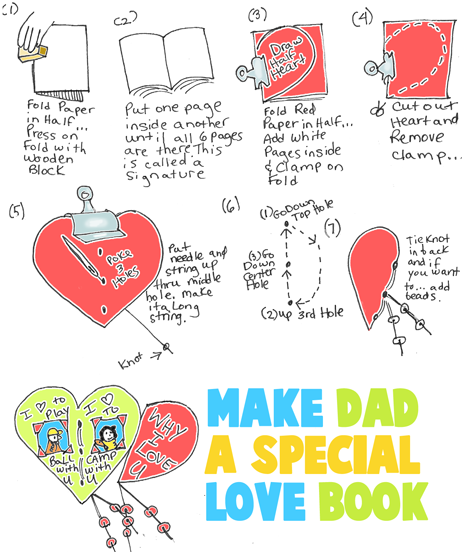 (1)
Fold Paper
in Half...
Press on
Fold with
Wooden
Block
(2)
Put one page
inside another
until all 6 pages
are there. This
is called a
signature
(3)
Draw
Half
Heart
Fold Red
Paper in Half...
Add White
Pages inside
& Clamp on
Fold
(4)
Cut out
Heart and
Remove
Clamp...
(5)
Poke
3
Holes
Put
needle and
string up
thru middle
hole. make
it a Long
string.
Knot →
(6)
(1) Go Down
Top Hole
(3) Go
Down
Center
Hole
(2) up 3rd Hole
(7)
Tie Knot
in back
and if
you want
to... add
beads.
I ♡ to
Play
Ball
with
U
I ♡ To
CAMP
with
U
WHY
I
LOVE
U
MAKE DAD
A SPECIAL
LOVE BOOK